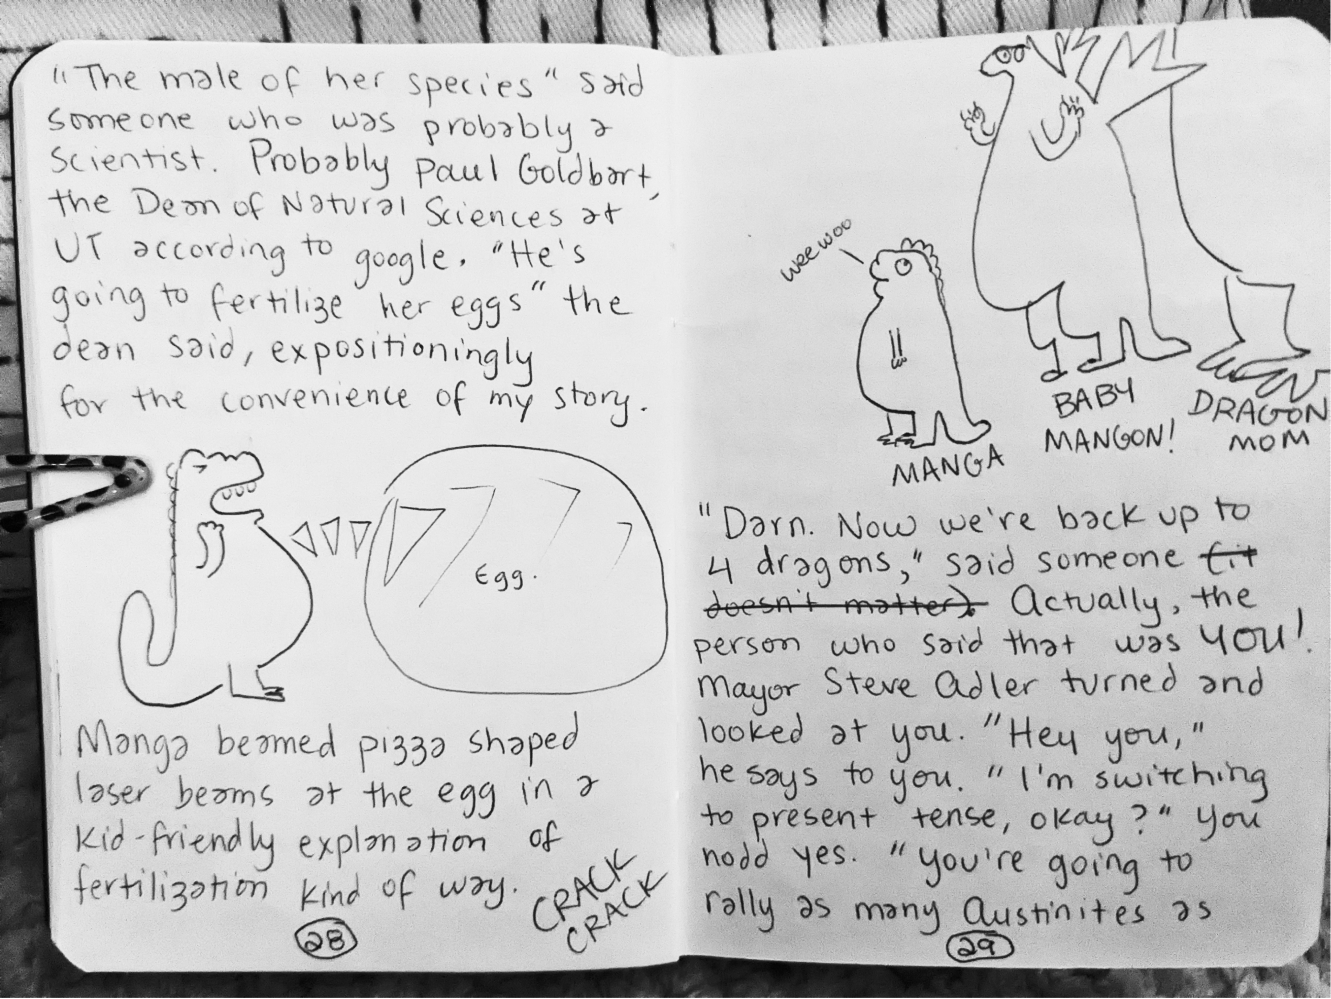 "The male of her species" said
someone who was probably a
scientist. Probably Paul Goldbart,
the Dean of Natural Sciences at
UT according to google. "He's
going to fertilize her eggs" the
dean said, expositioningly
for the convenience of my story.
Egg.
Manga beamed pizza shaped
laser beams at the egg in a
kid-friendly explanation of
fertilization kind of way.
CRACK
CRACK
28
weewoo
MANGA
BABY
MANGON!
DRAGON
MOM
"Darn. Now we're back up to
4 dragons," said someone (it
doesn't matter). Actually, the
person who said that was YOU!
Mayor Steve Adler turned and
looked at you. "Hey you,"
he says to you. "I'm switching
to present tense, okay?" You
nodd yes. "You're going to
rally as many Austinites as
29